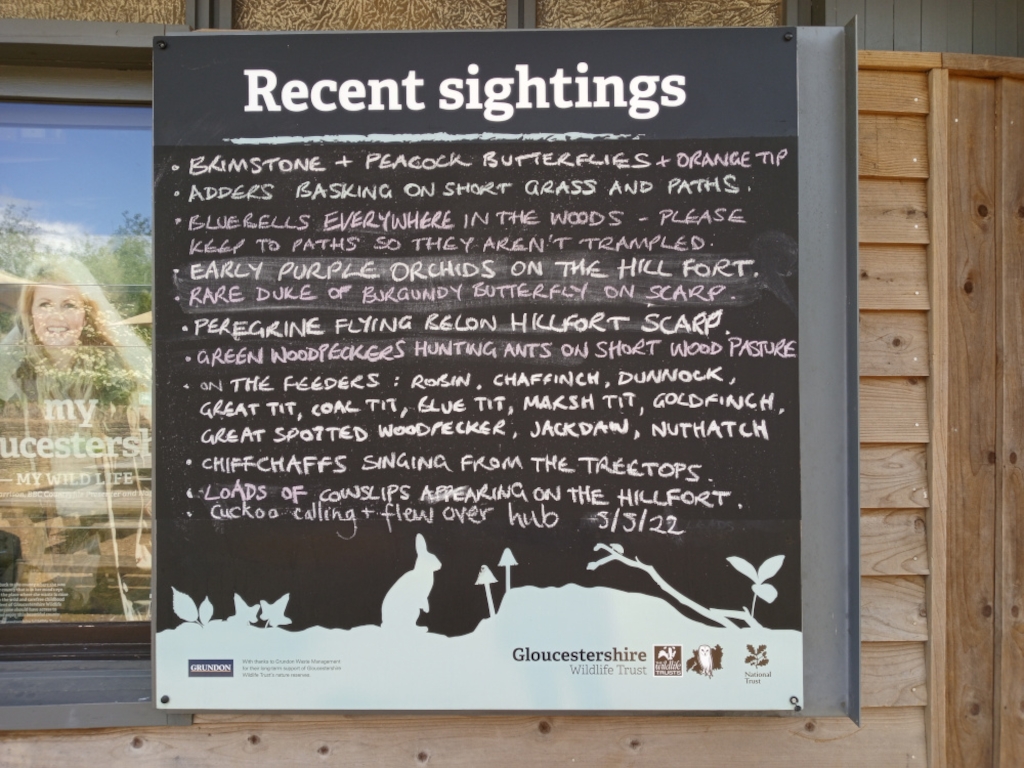 Recent sightings
• BRIMSTONE + PEACOCK BUTTERFLIES + ORANGE TIP
• ADDERS BASKING ON SHORT GRASS AND PATHS.
• BLUEBELLS EVERYWHERE IN THE WOODS - PLEASE
KEEP TO PATHS SO THEY AREN'T TRAMPLED.
• EARLY PURPLE ORCHIDS ON THE HILL FORT.
• RARE DUKE OF BURGUNDY BUTTERFLY ON SCARP.
• PEREGRINE FLYING BELOW HILLFORT SCARP.
• GREEN WOODPECKERS HUNTING ANTS ON SHORT WOOD PASTURE
• ON THE FEEDERS : ROBIN, CHAFFINCH, DUNNOCK,
GREAT TIT, COAL TIT, BLUE TIT, MARSH TIT, GOLDFINCH,
GREAT SPOTTED WOODPECKER, JACKDAW, NUTHATCH
• CHIFFCHAFFS SINGING FROM THE TREETOPS.
• LOADS OF COWSLIPS APPEARING ON THE HILLFORT.
• Cuckoo calling + flew over hub 5/5/22
my
ucestersh
MY WILD LIFE
GRUNDON
With thanks to Grundon Waste Management
for their long-term support of Gloucestershire
Wildlife Trust's nature reserves.
Gloucestershire
Wildlife Trust
wildlife
TRUSTS
National
Trust